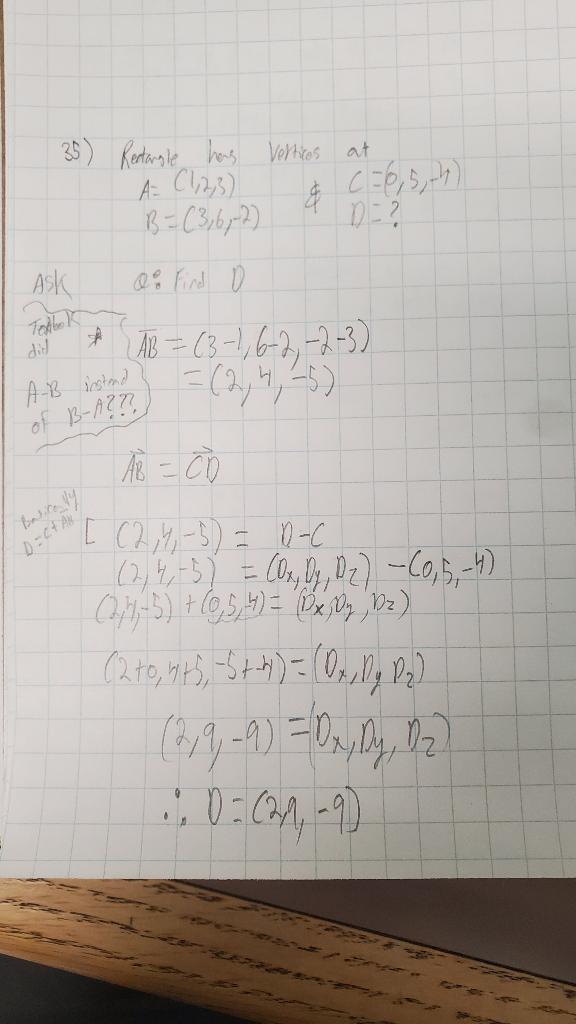 35) Rectangle has Vertices at
A= (1,2,3) & C =(0,5,-4)
B = (3,6,-2) D = ?
ASK Q: Find D
Textbook did
A-B instead
of B-A???
* AB = (3-1, 6-2, -2-3)
= (2, 4, -5)
AB = CD
Basically
D=C+AB
[ (2,4,-5) = D-C
(2,4,-5) = (Dx,Dy,Dz) -(0,5,-4)
(2,4,-5) + (0,5,-4)= (Dx,Dy,Dz)
(2+0,4+5,-5+-4)=(Dx,Dy Dz)
(2,9,-9) =(Dx,Dy,Dz)
∴ D=(2,9,-9)